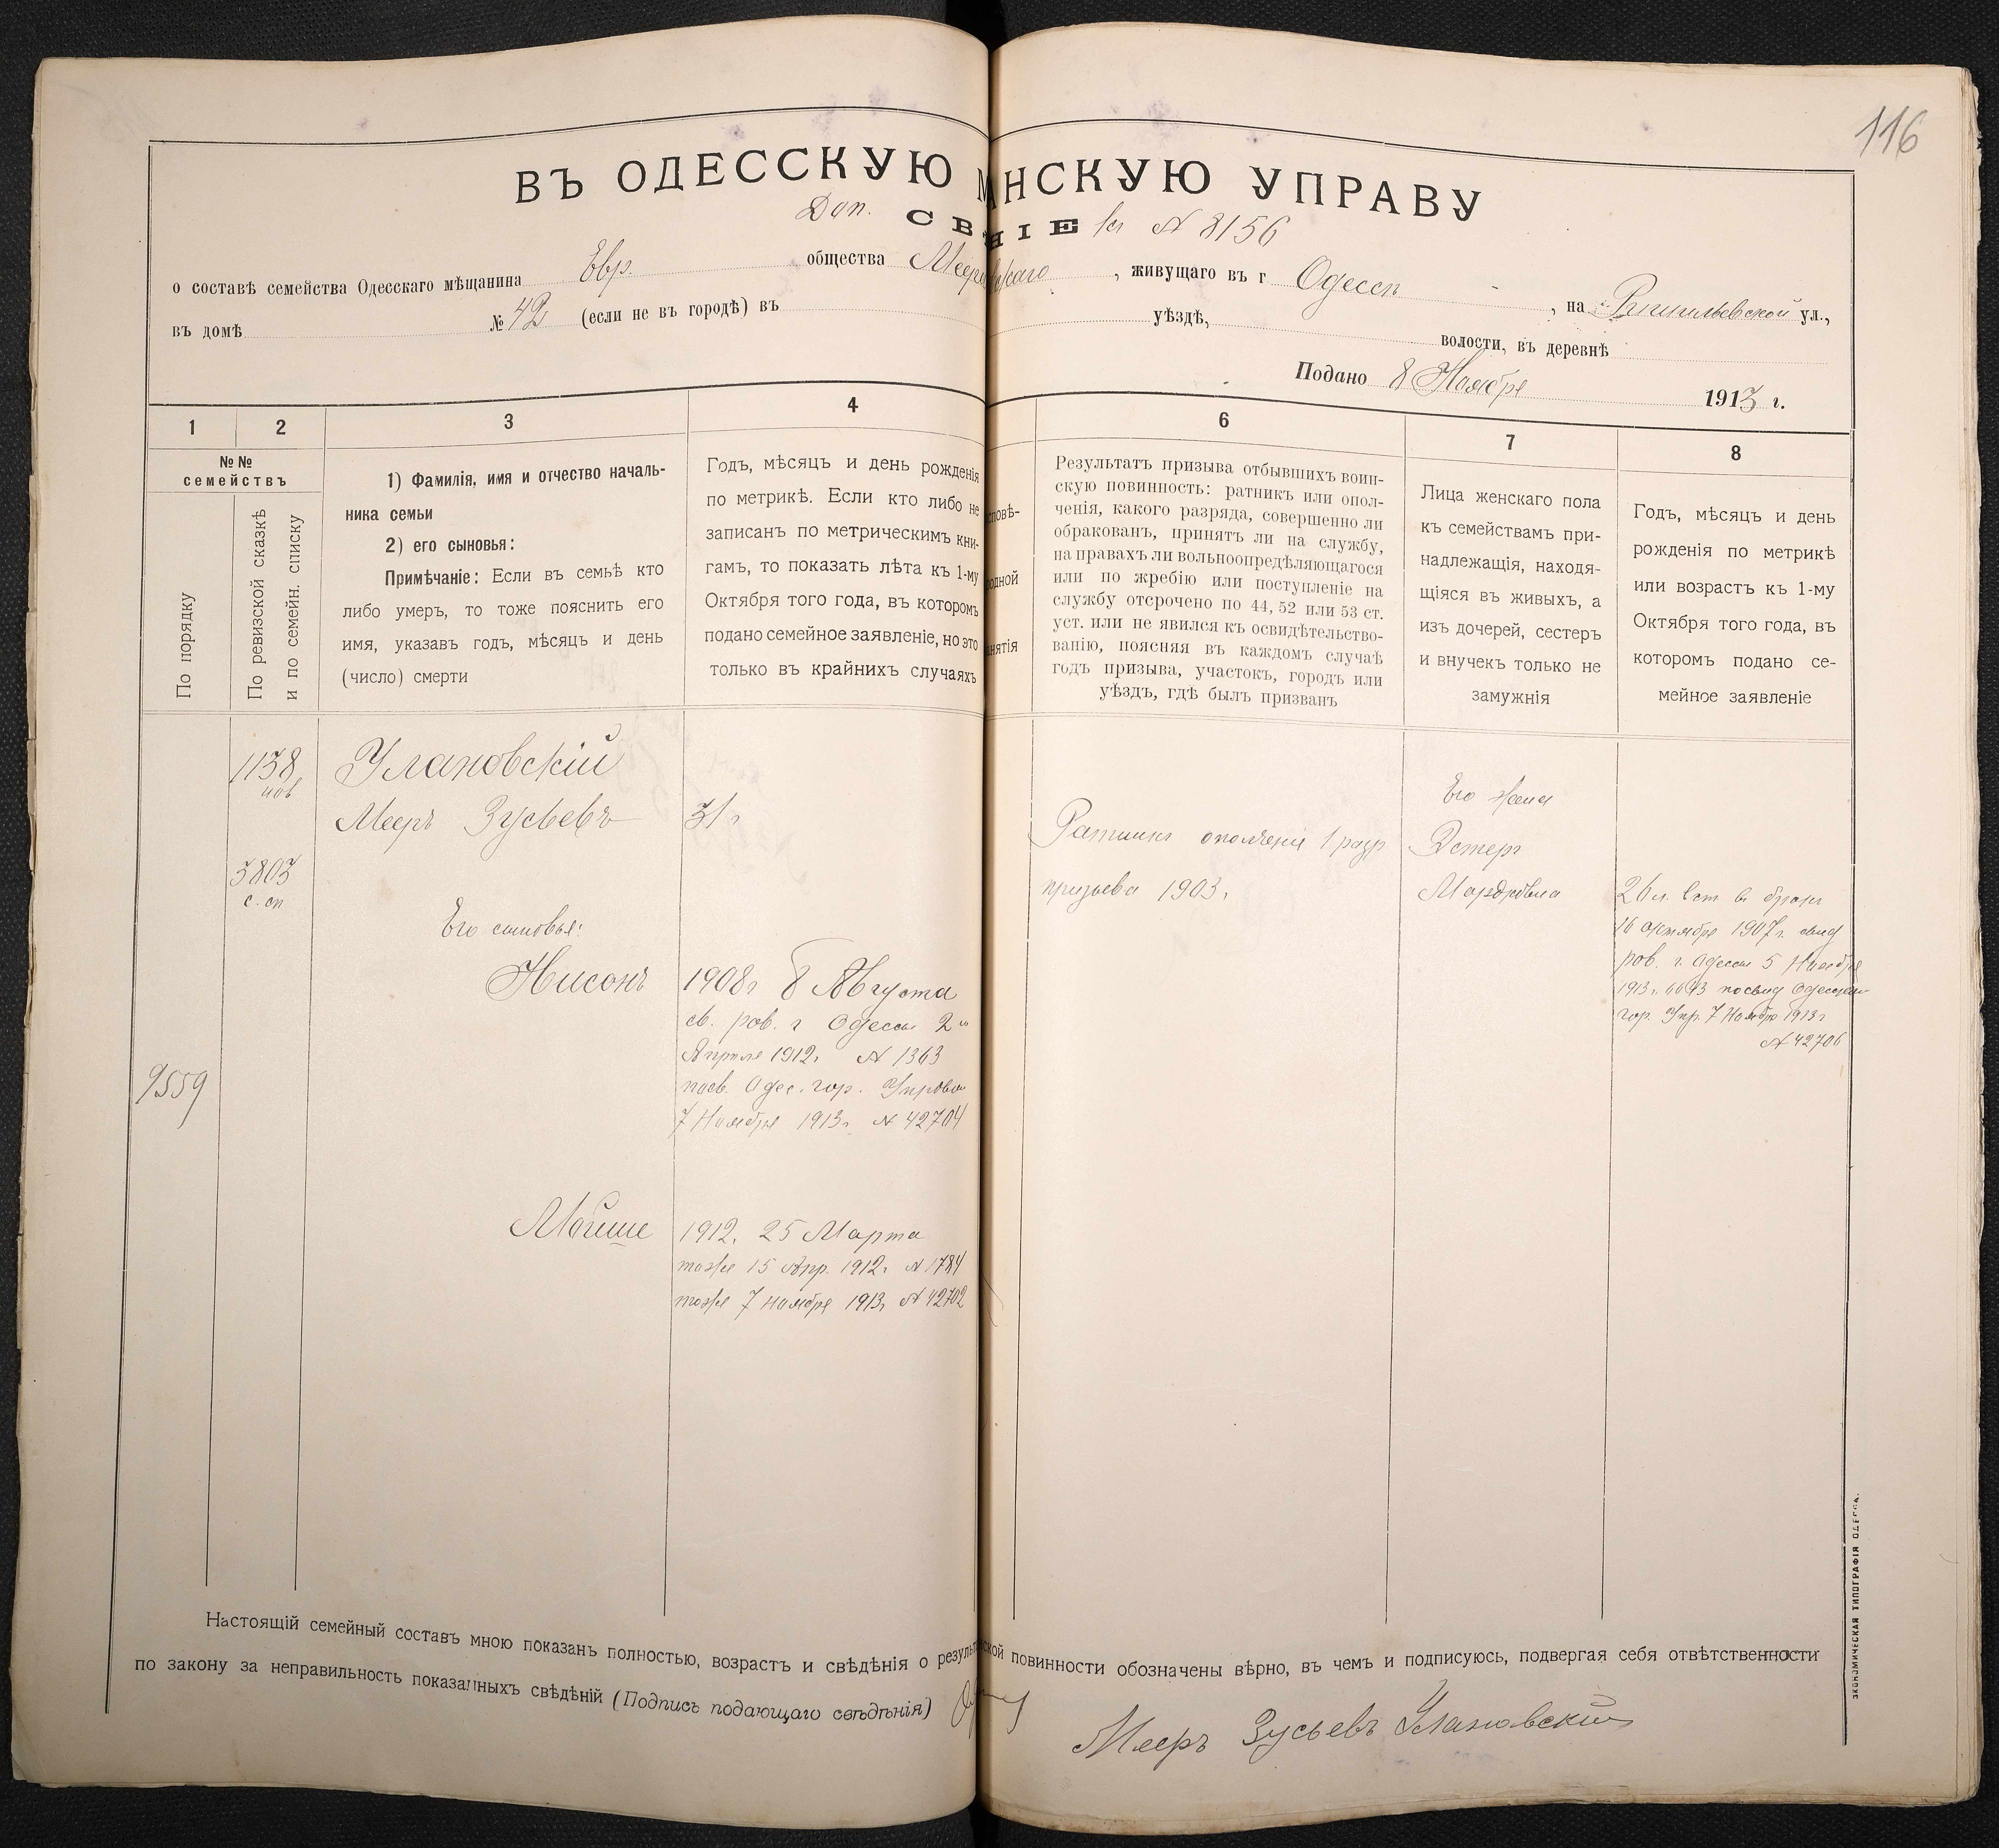 116
ВЪ ОДЕССКУЮ НСКУЮ УПРАВУ
Доп. СВ НІЕ къ № 8156
о составѣ семейства Одесскаго мѣщанина Евр. общества , живущаго въ г Одессѣ , на Ришельевской ул.,
въ домѣ № 42 (если не въ городѣ) въ уѣздѣ, волости, въ деревнѣ
Подано 8 Ноября 1913 г.
1
2
3
4
6
7
8
№№ семействъ
По порядку
По ревизской сказкѣ
и по семейн. списку
1) Фамилія, имя и отчество началь-
ника семьи
2) его сыновья:
Примѣчаніе: Если въ семьѣ кто
либо умеръ, то тоже пояснить его
имя, указавъ годъ, мѣсяцъ и день
(число) смерти
Годъ, мѣсяцъ и день рожденія
по метрикѣ. Если кто либо не
записанъ по метрическимъ кни-
гамъ, то показать лѣта къ 1-му
Октября того года, въ которомъ
подано семейное заявленіе, но это
только въ крайнихъ случаяхъ
сповѣ-
родной
анятія
Результатъ призыва отбывшихъ воин-
скую повинность: ратникъ или опол-
ченія, какого разряда, совершенно ли
обракованъ, принятъ ли на службу,
на правахъ ли вольноопредѣляющагося
или по жребію или поступленіе на
службу отсрочено по 44, 52 или 53 ст.
уст. или не явился къ освидѣтельство-
ванію, поясняя въ каждомъ случаѣ
годъ призыва, участокъ, городъ или
уѣздъ, гдѣ былъ призванъ
Лица женскаго пола
къ семействамъ при-
надлежащія, находя-
щіяся въ живыхъ, а
изъ дочерей, сестеръ
и внучекъ только не
замужнія
Годъ, мѣсяцъ и день
рожденія по метрикѣ
или возрастъ къ 1-му
Октября того года, въ
которомъ подано се-
мейное заявленіе
9559
1138
нов
3803
с. сп
Улановскій
Мееръ Зусьевъ
Его сыновья:
Нисонъ
Мойше
31 г
1908 г 8 Августа
св. рав. г Одессы 2го
Апреля 1912 г № 1363
Одес. гор. Управы
7 Ноября 1913 г № 42704
1912 г. 25 Марта
тоже 15 Апр. 1912 г № 1784
тоже 7 Ноября 1913 г № 42702
Ратникъ ополченія 1 разр
призыва 1903 г.
Его жена
Эстеръ
Мордковна
26 л. вст. въ бракъ
16 Октября 1907 г. свид
рав. г. Одессы 5 Ноября
1913 г. 6643
гор. Упр. 7 Ноября 1913 г
№ 42706
Настоящій семейный составъ мною показанъ полностью, возрастъ и свѣдѣнія о резуль ской повинности обозначены вѣрно, въ чемъ и подписуюсь, подвергая себя отвѣтственности
по закону за неправильность показанныхъ свѣдѣній (Подпись подающаго свѣдѣнія)
Мееръ Зусьевъ Улановскій
ЭКОНОМИЧЕСКАЯ ТИПОГРАФІЯ ОДЕССА.